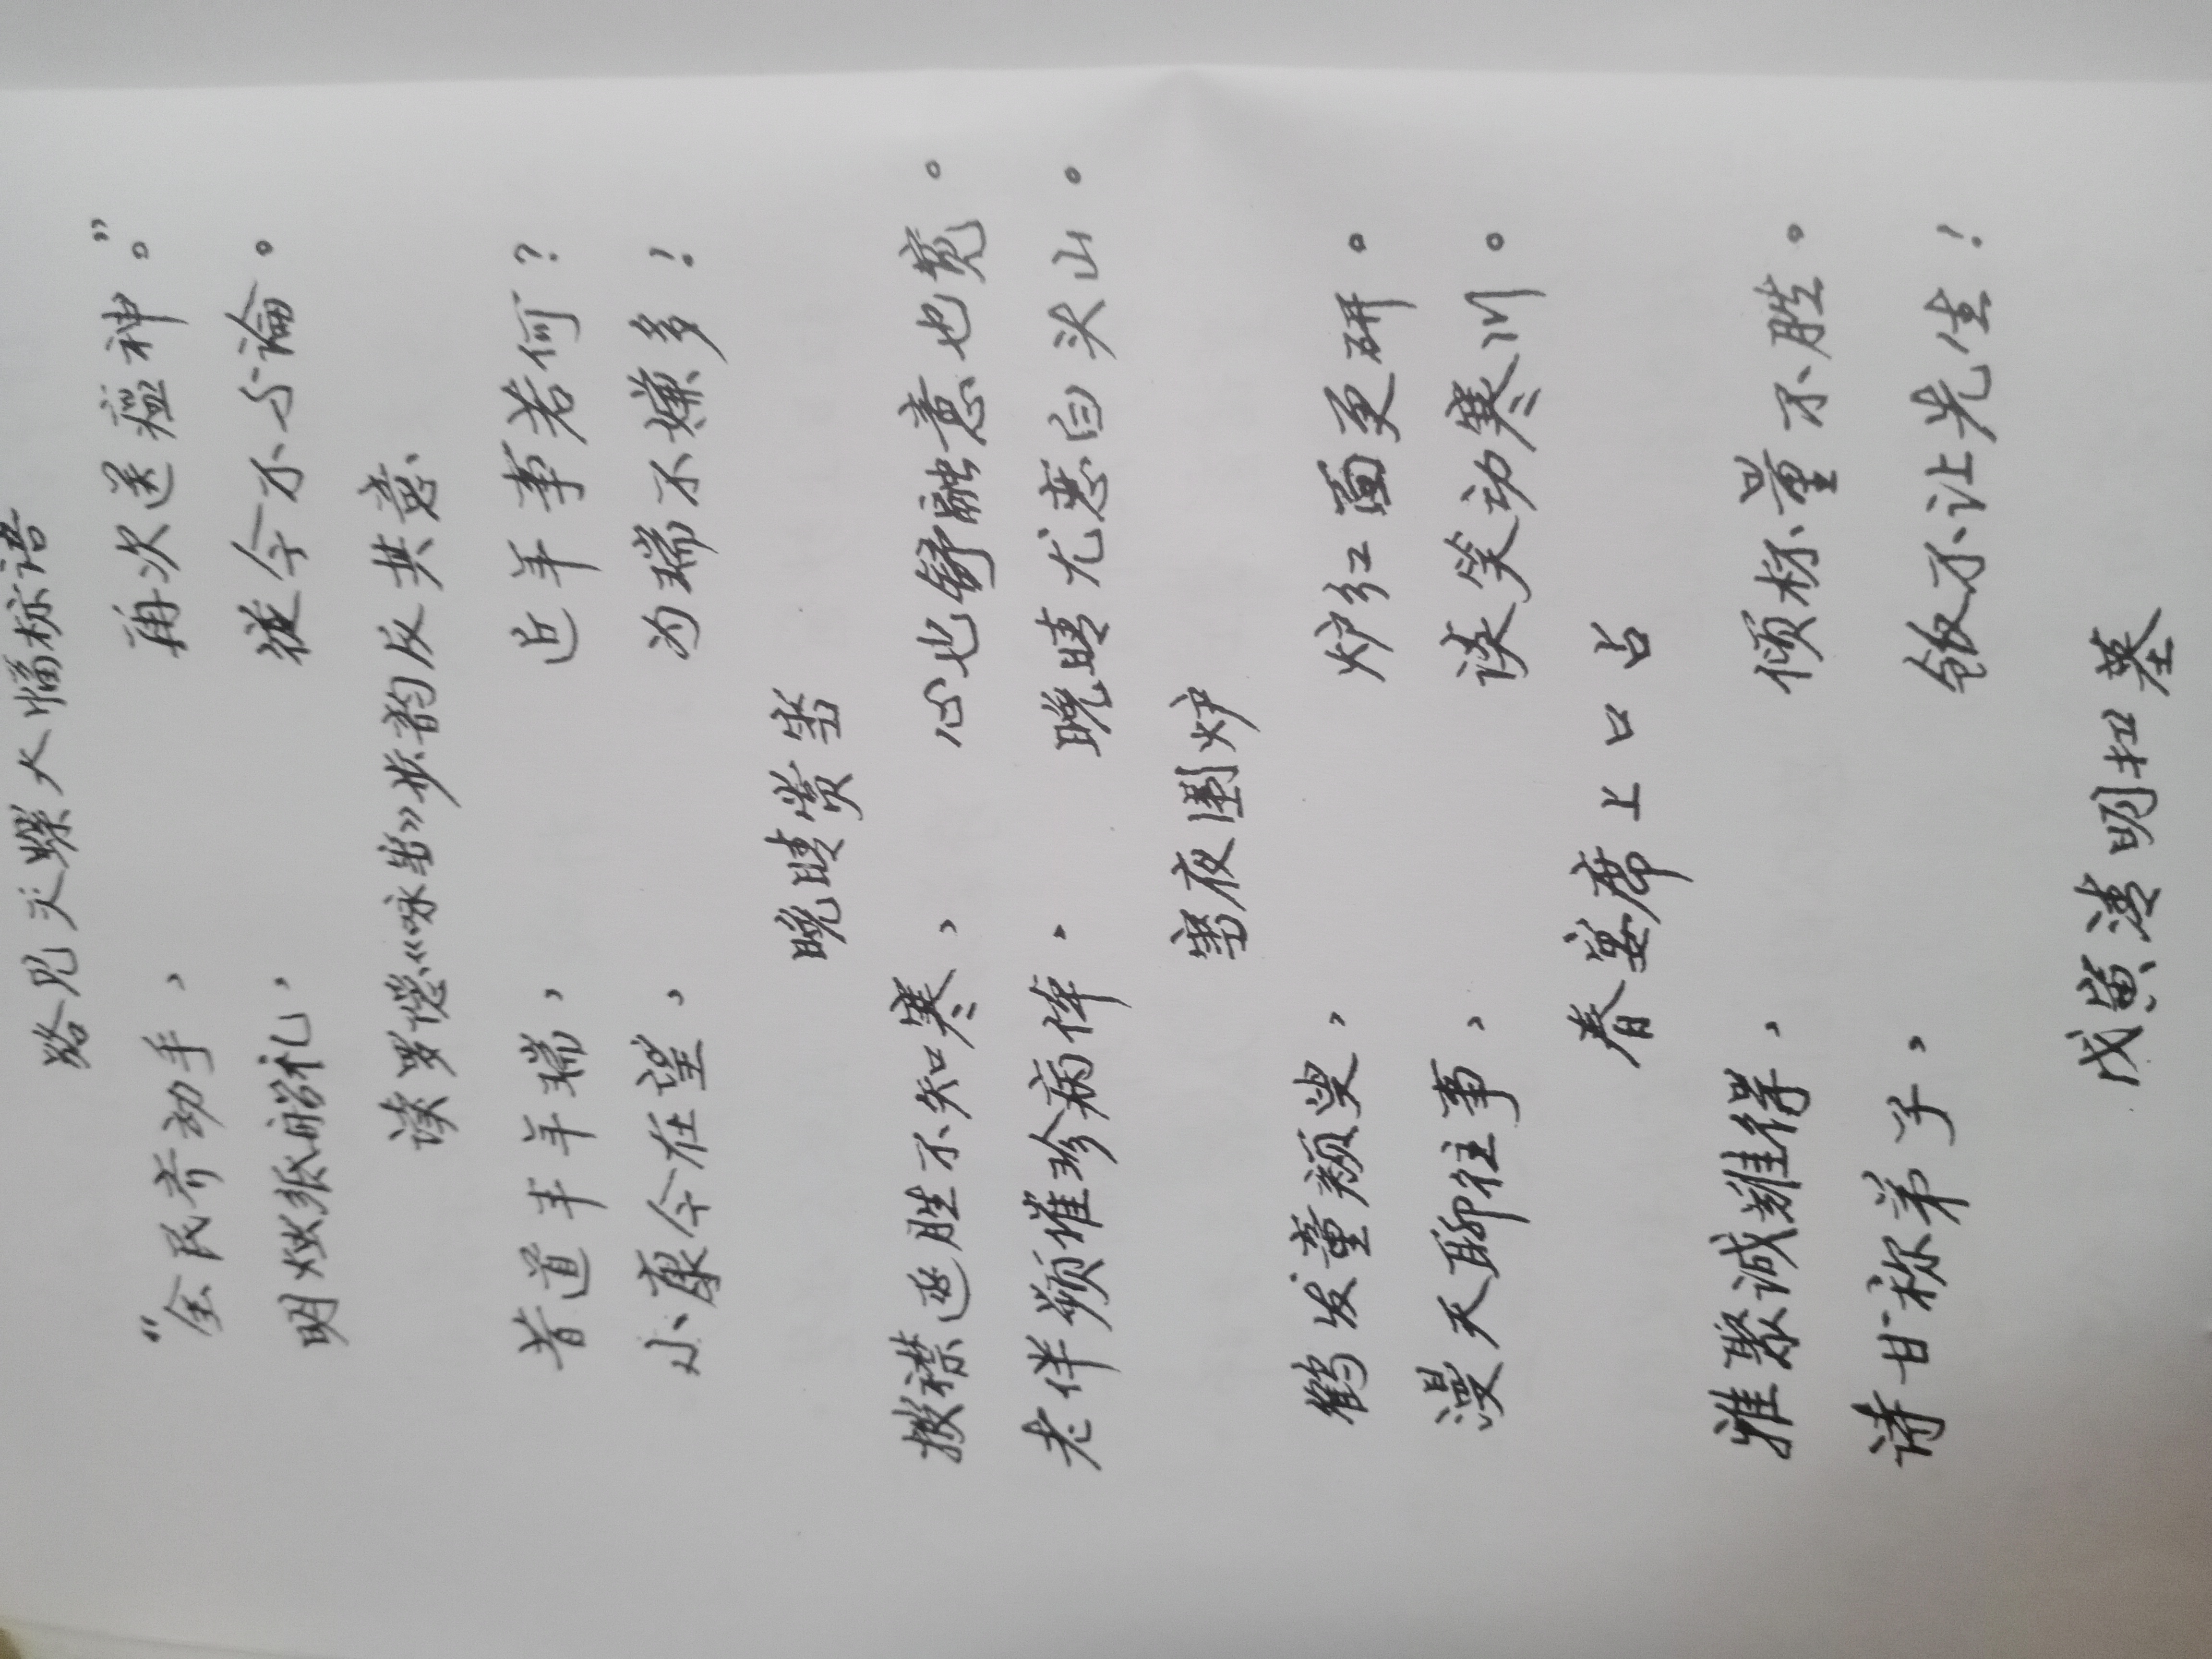 路见灭螺大幅标语
“全民齐动手， 再次送瘟神。”
明烛纸船礼， 從今不与論。
读罗隐《咏雪》步韵反其意
昔道丰年瑞， 近年事若何？
小康今在望， 为瑞不嫌多！
晚晴赏雪
披襟迎胜不知寒， 心也舒融意也宽。
老伴频催珍病体， 晚晴尤恋白头山。
雪夜围炉
鹤发童颜叟， 炉红面更妍。
漫天聊往事， 谈笑动寒川。
春宴席上口占
雅聚诚难得， 倾杯量不胜。
诗甘称弟子， 饭不让先生！
戊寅清明扫墓